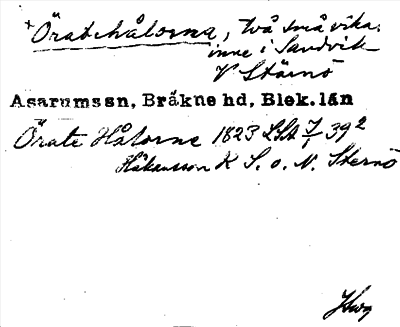 +Öratehålorna, två små vikar
inne i Sandvik
V Stärnö
Asarums sn, Bräkne hd, Blek. län
Örate Hålorne 1823 LSA 7/1 39²
Håkansson K S. o. N. Sternö